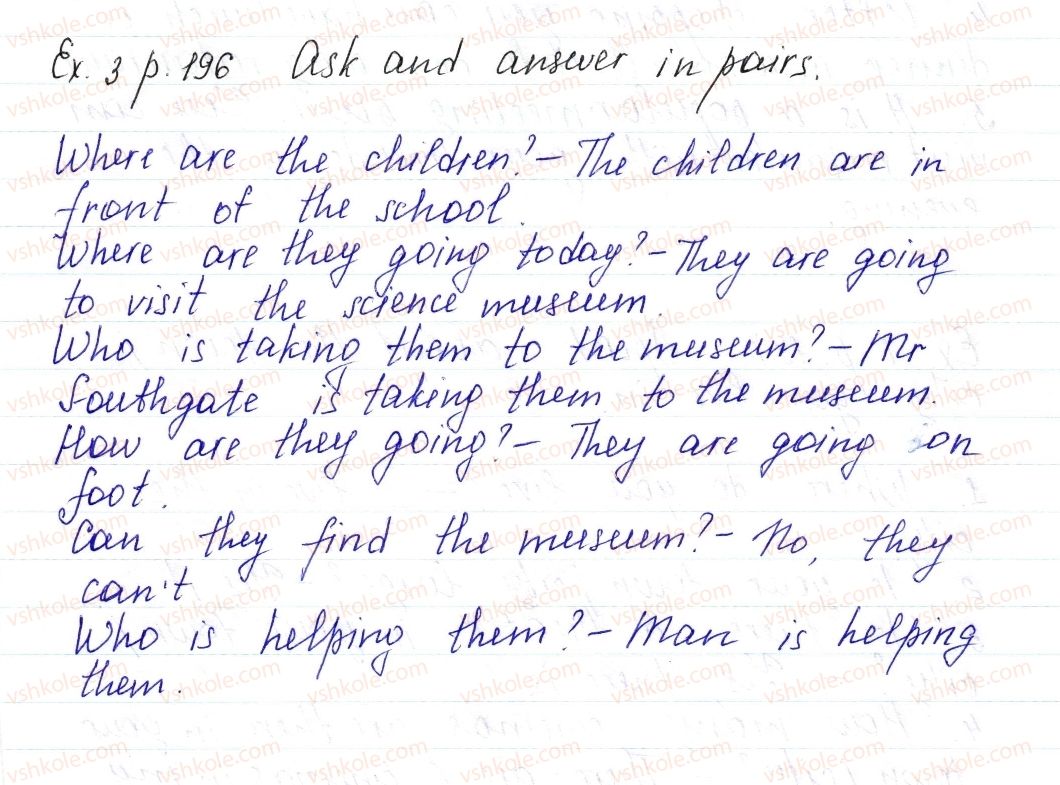 Ex. 3 p. 196 Ask and answer in pairs.
Where are the children? – The children are in
front of the school.
Where are they going today? – They are going
to visit the science museum.
Who is taking them to the museum? – Mr
Southgate is taking them to the museum.
How are they going? – They are going on
foot.
Can they find the museum? – No, they
can't
Who is helping them? – Man is helping
them.